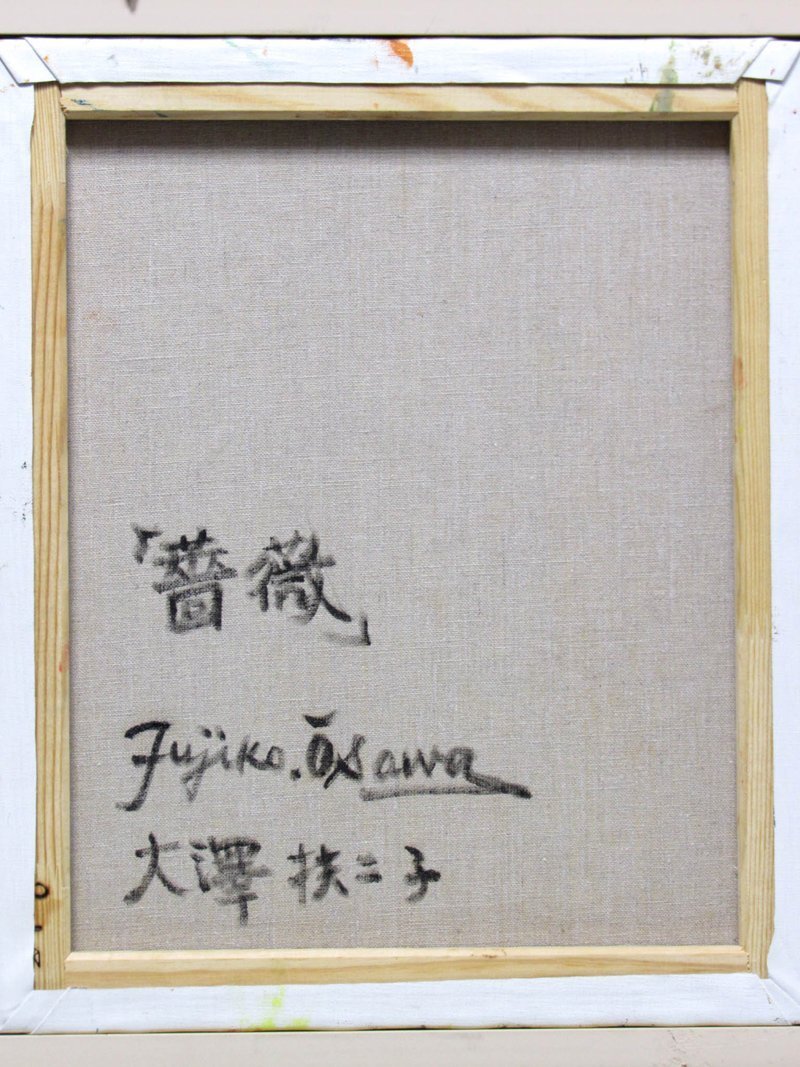 「薔薇」
Fujiko.Ōsawa
大澤扶二子